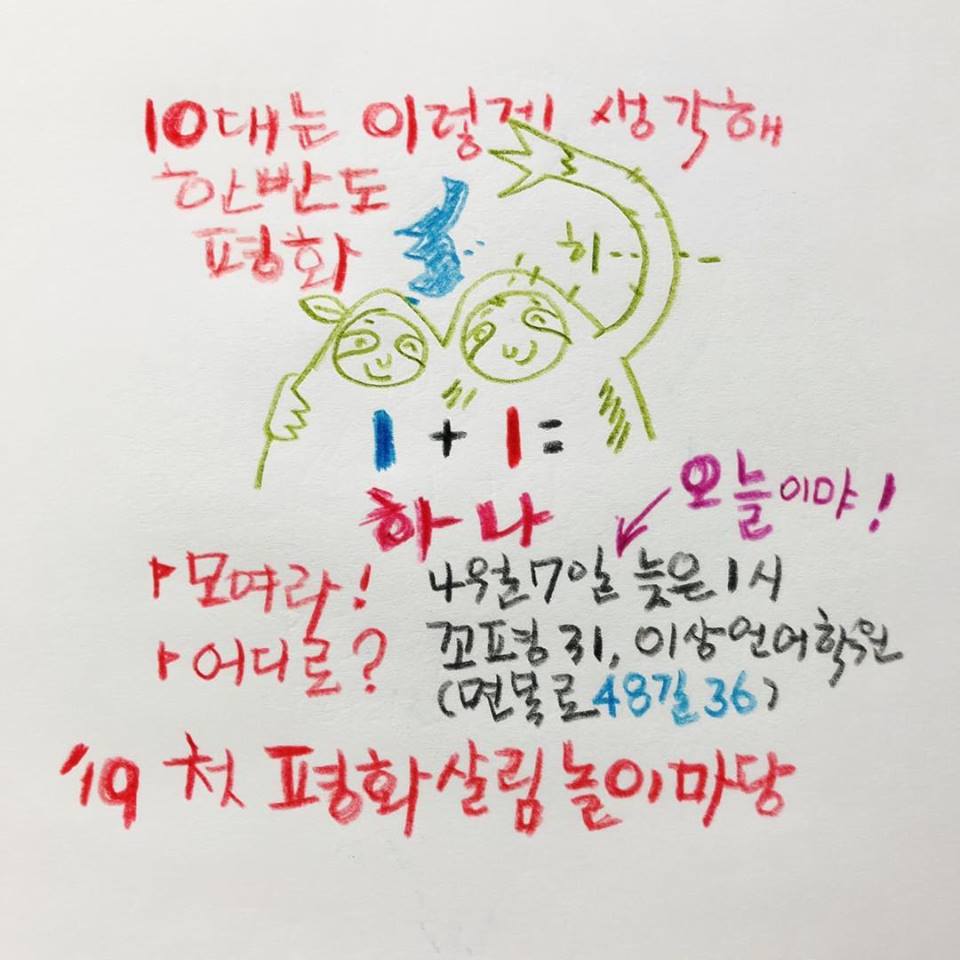 10대는 이렇게 생각해
한반도
평화
히
1 + 1 =
하나
오늘이야!
▶모여라! 4월7일 늦은 1시
▶어디로? 꼬평화, 이상언어학원
(면목로48길36)
'19 첫 평화살림놀이마당